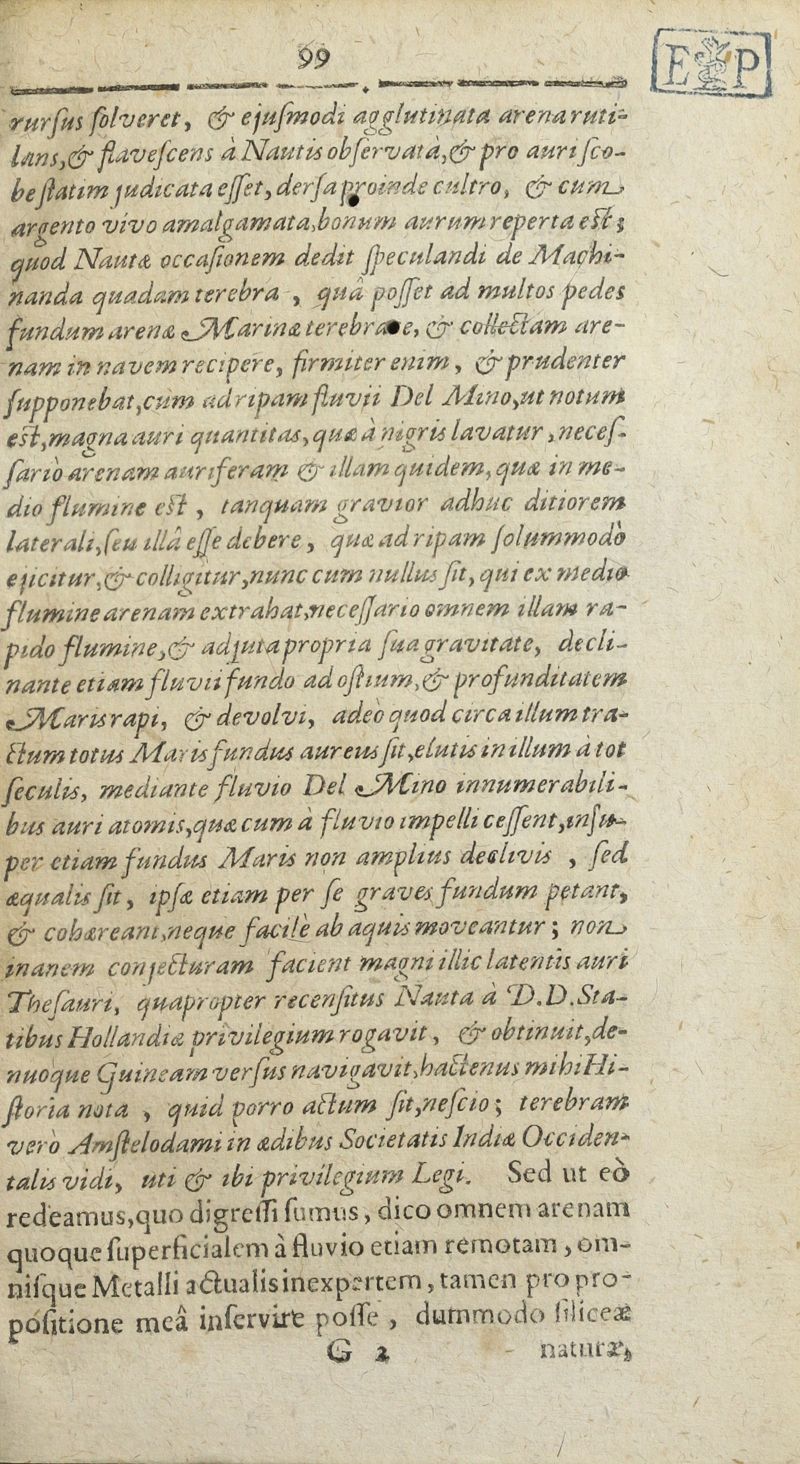 99
E P
rurſus ſolveret, & ejuſmodi agglutinata arena ruti-
lans,& flaveſcens à Nautis obſervata,& pro auri ſco-
be ſtatim judicata eſſet, derſa proinde cultro, & cum
argento vivo amalgamata,bonum aurum reperta eſt;
quod Nautæ occaſionem dedit ſpeculandi de Machi-
nanda quadam terebra , quâ poſſet ad multos pedes
fundum arenæ Marinæ terebrare, & collectam are-
nam in navem recipere, firmiter enim, & prudenter
ſupponebat,cum ad ripam fluvii Del Mino,ut notum
eſt,magna auri quantitas,quæ à nigris lavatur,neceſ-
ſariò arenam auriferam & illam quidem, quæ in me-
dio flumine eſt , tanquam gravior adhuc ditiorem
laterali,ſeu illâ eſſe debere , quæ ad ripam ſolummodò
ejicitur,& colligitur,nunc cum nullus ſit, qui ex medio
flumine arenam extrahat,neceſſario omnem illam ra-
pido flumine,& adjuta propria ſua gravitate, decli-
nante etiam fluvii fundo ad oſtium,& profunditatem
Maris rapi, & devolvi, adeò quod circa illum tra-
ctum totus Maris fundus aureus ſit,elutis in illum à tot
ſeculis, mediante fluvio Del Mino innumerabili-
bus auri atomis,quæ cum à fluvio impelli ceſſent,inſu-
per etiam fundus Maris non amplius declivis , ſed
æqualis ſit, ipſæ etiam per ſe graves fundum petant,
& cohæreant,neque facilè ab aquis moveantur; non
inanem conjecturam facient magni illic latentis auri
Theſauri, quapropter recenſitus Nauta à D.D.Sta-
tibus Hollandiæ privilegium rogavit, & obtinuit,de-
nuoque Guineam verſus navigavit,hactenus mihi Hi-
ſtoria nota , quid porro actum ſit,neſcio; terebram
verò Amſtelodami in ædibus Societatis Indiæ Occiden-
talis vidi, uti & ibi privilegium Legi. Sed ut eò
redeamus,quo digreſſi ſumus, dico omnem arenam
quoque ſuperficialem à fluvio etiam remotam, om-
niſque Metalli actualis inexpertem, tamen pro pro-
poſitione meâ inſervire poſſe , dummodo ſiliceæ
G 2 naturæ,